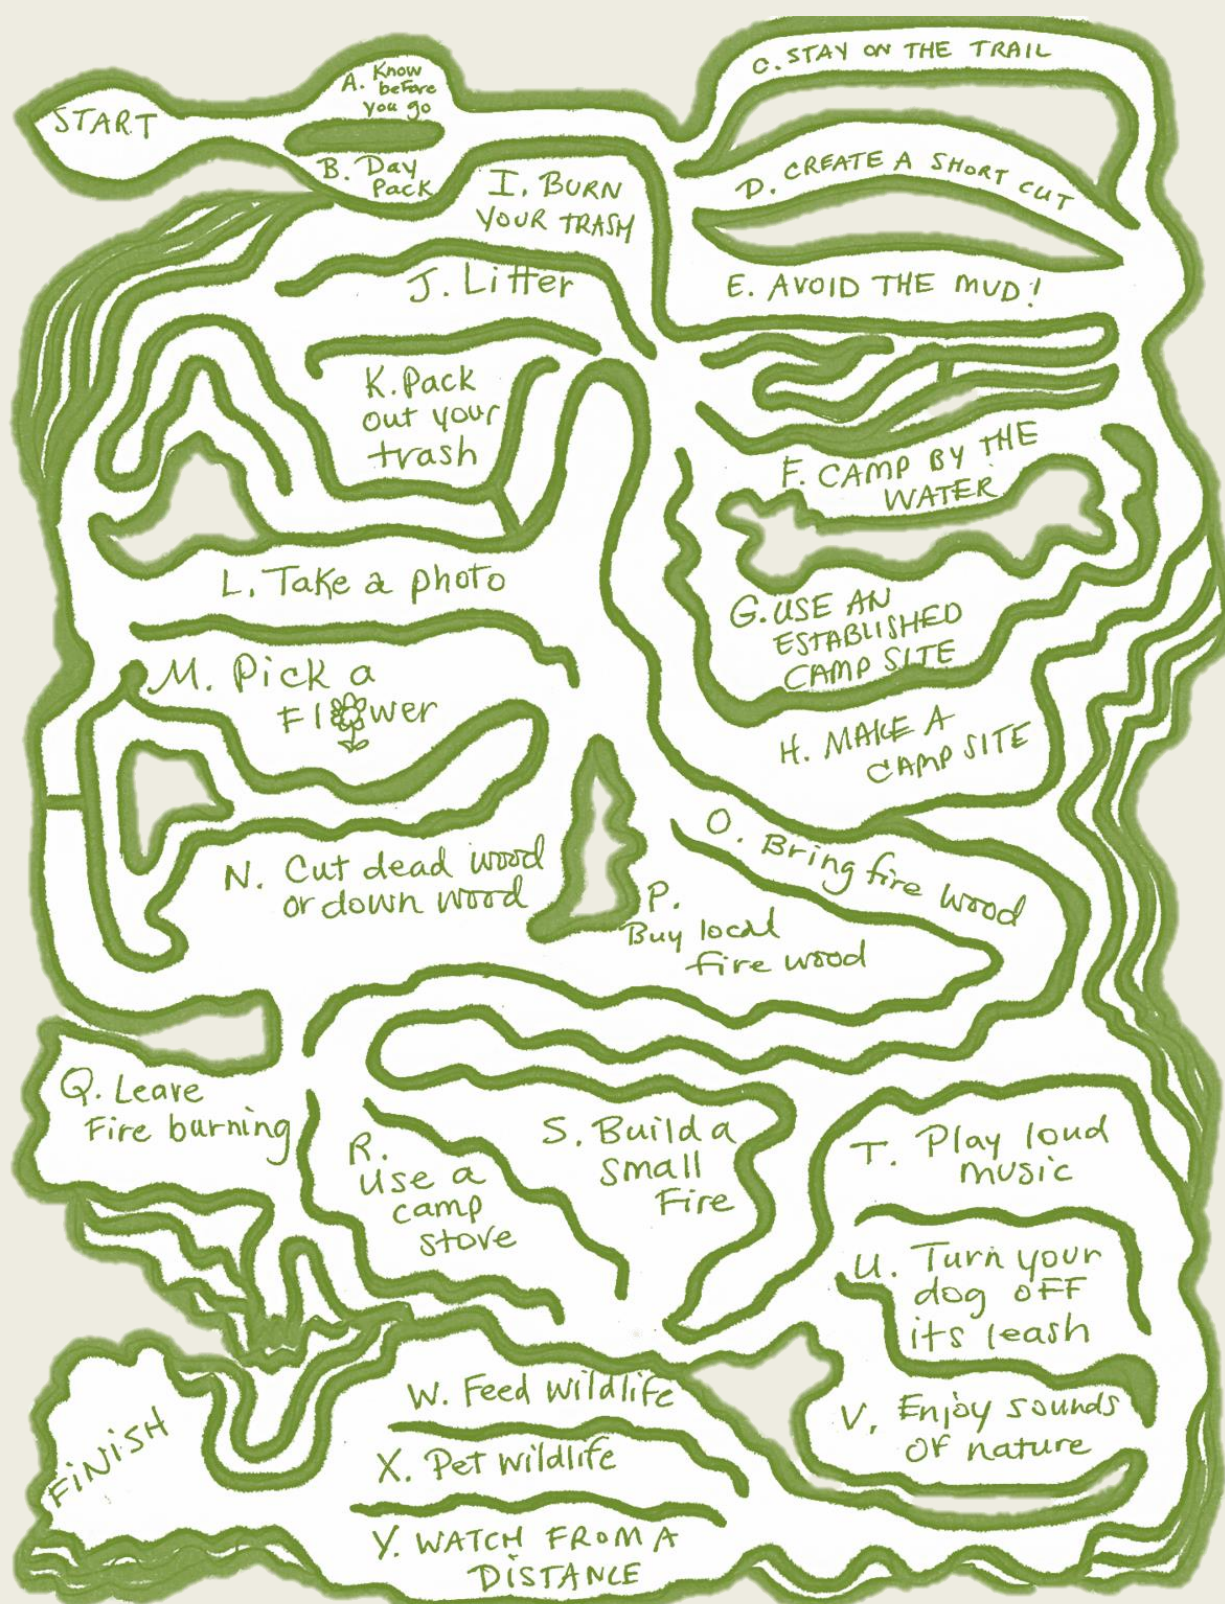 START
A. Know
before
you go
B. Day
Pack
C. STAY ON THE TRAIL
D. CREATE A SHORT CUT
E. AVOID THE MUD!
F. CAMP BY THE
WATER
G. USE AN
ESTABLISHED
CAMP SITE
H. MAKE A
CAMP SITE
I. BURN
YOUR TRASH
J. Litter
K. Pack
out your
trash
L. Take a photo
M. Pick a
Flower
N. Cut dead wood
or down wood
O. Bring fire wood
P.
Buy local
fire wood
Q. Leave
Fire burning
R.
Use a
camp
stove
S. Build a
small
Fire
T. Play loud
music
U. Turn your
dog OFF
its leash
V. Enjoy sounds
OF nature
W. Feed wildlife
X. Pet wildlife
Y. WATCH FROM A
DISTANCE
FINISH